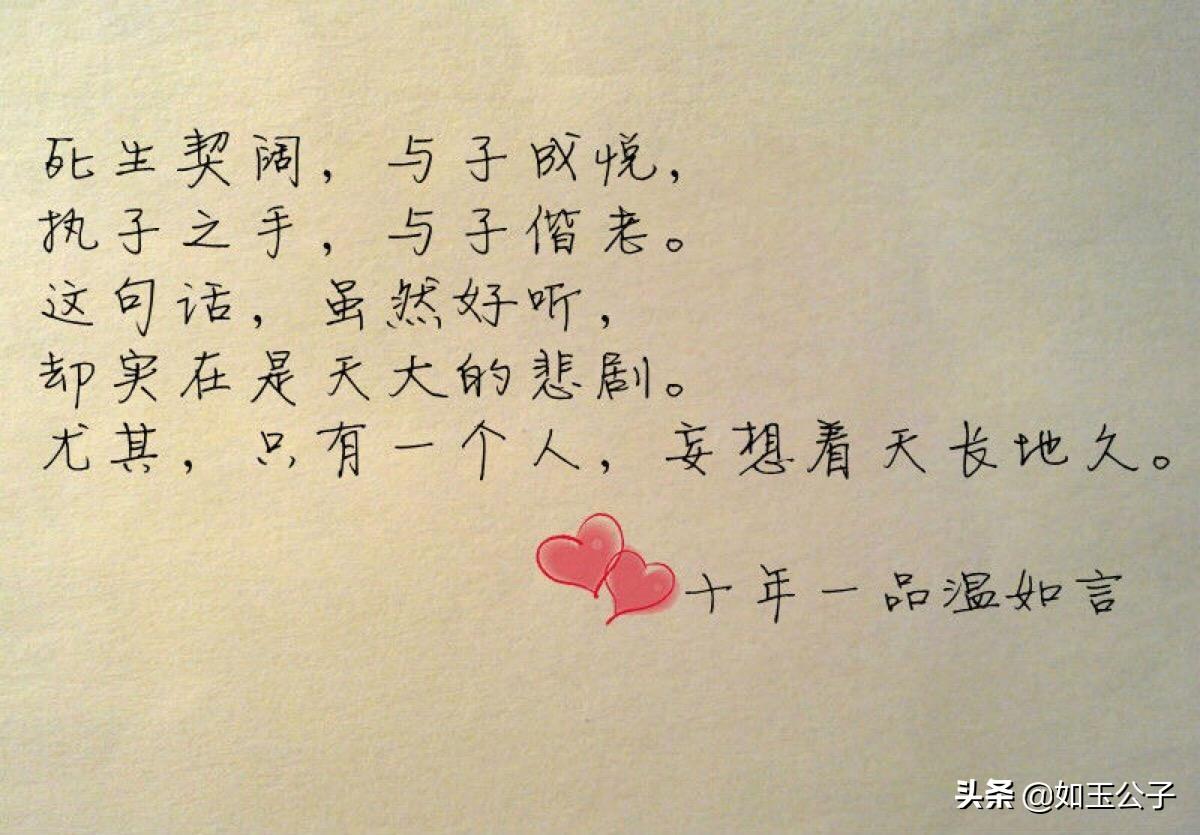 死生契阔，与子成悦，
执子之手，与子偕老。
这句话，虽然好听，
却实在是天大的悲剧。
尤其，只有一个人，妄想着天长地久。
十年一品温如言
头条 @如玉公子